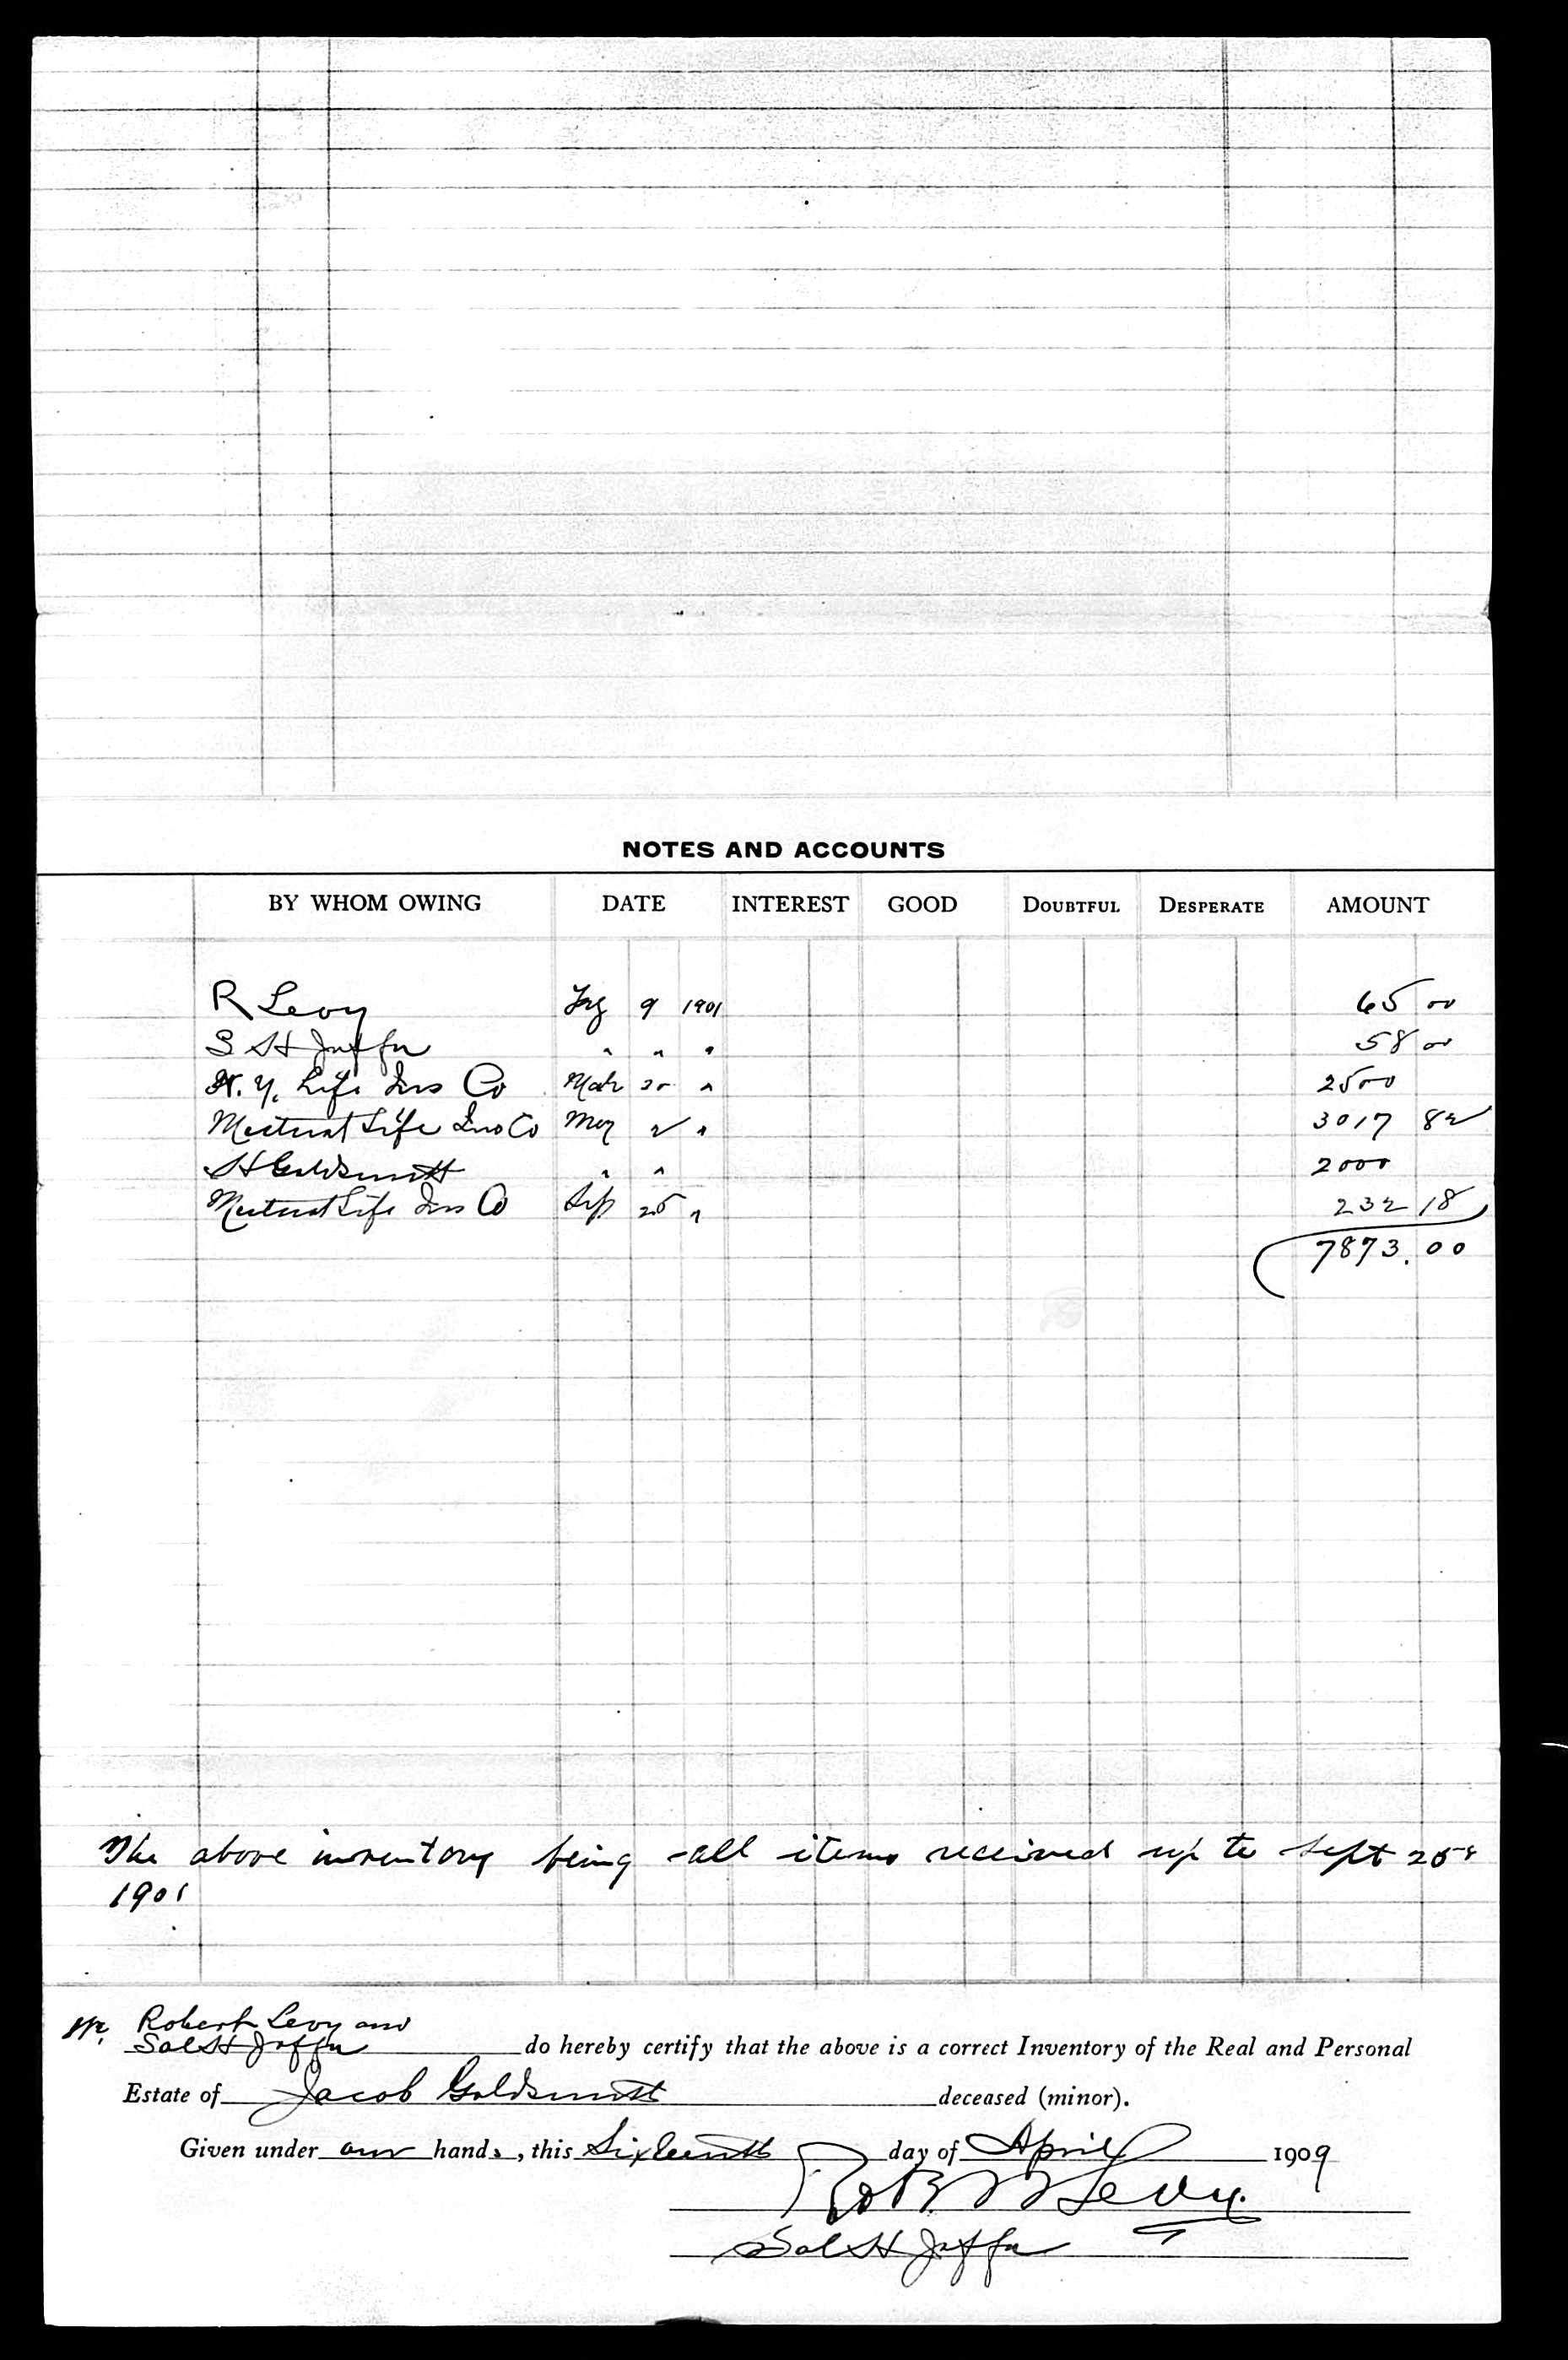 NOTES AND ACCOUNTS
BY WHOM OWING DATE INTEREST GOOD DOUBTFUL DESPERATE AMOUNT
R Levy 9 1901 65 00
S H Jaffa " " " 58 00
N. Y. Life Ins Co Mch 20 " 2500
Mutual Life Ins Co May 2 " 3017 82
H Goldsmith " " 2000
Mutual Life Ins Co Sep 25 " 232 18
7873.00
The above inventory being all items received up to Sept 25
1901
We, Robert Levy and
Sol H Jaffa do hereby certify that the above is a correct Inventory of the Real and Personal
Estate of Jacob Goldsmith deceased (minor).
Given under our hands, this Sixteenth day of April 1909
Robt Levy.
Sol H Jaffa